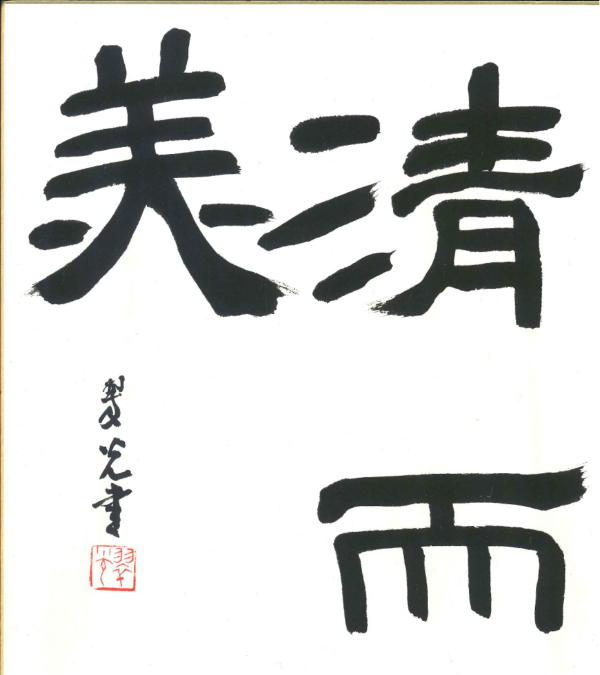 清而
美
光書